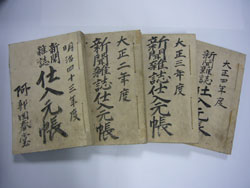 明治四十三年度
新聞
雜誌
仕入元帳
阿部
大正二年度
新聞雜誌仕入元帳
大正三年度
新聞雜誌仕入元帳
大正四年度
新聞雜誌仕入元帳